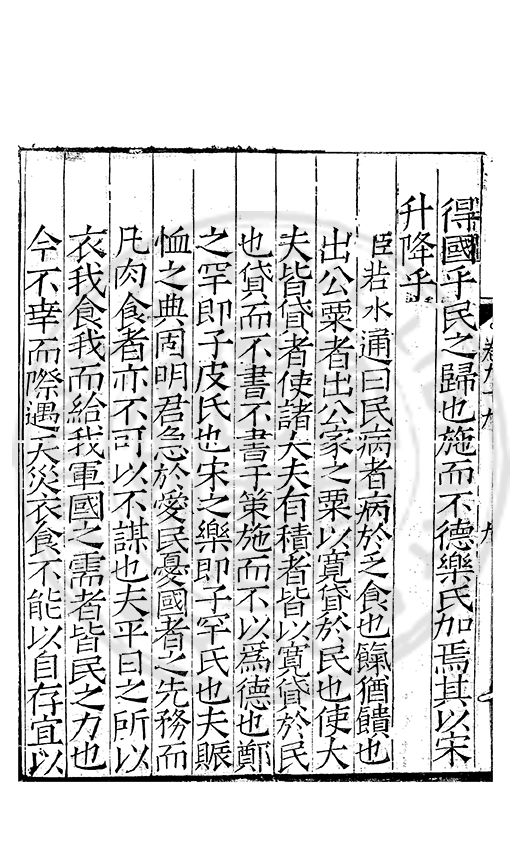 得國乎民之歸也施而不德樂氏加焉其以宋
升降乎
臣若水通曰民病者病於乏食也餼猶饋也
出公粟者出公家之粟以寬貸於民也使大
夫皆貸者使諸大夫有積者皆以寬貸於民
也貸而不書不書于策施而不以為德也鄭
之罕即子皮氏也宋之樂即子罕氏也夫賑
恤之典固明君急於愛民憂國者之先務而
凡肉食者亦不可以不謀也夫平日之所以
衣我食我而給我軍國之需者皆民之力也
今不幸而際遇天災衣食不能以自存宜以